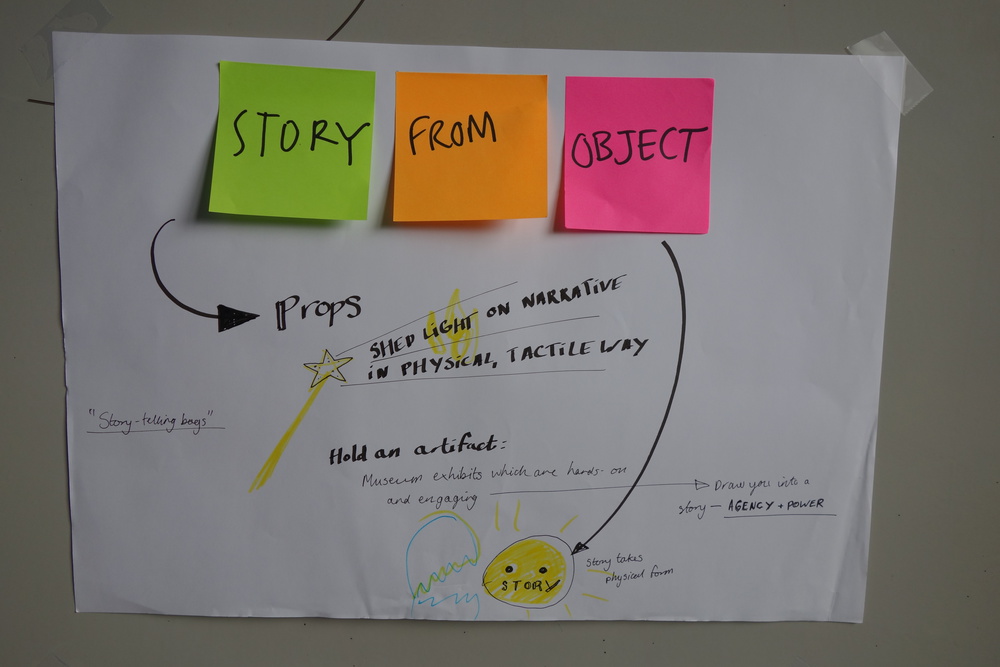 STORY
FROM
OBJECT
Props
SHED LIGHT ON NARRATIVE
IN PHYSICAL, TACTILE WAY
"Story-telling bags"
Hold an artifact:
Museum exhibits which are hands-on
and engaging
Draw you into a
story — AGENCY + POWER
STORY
story takes
physical form